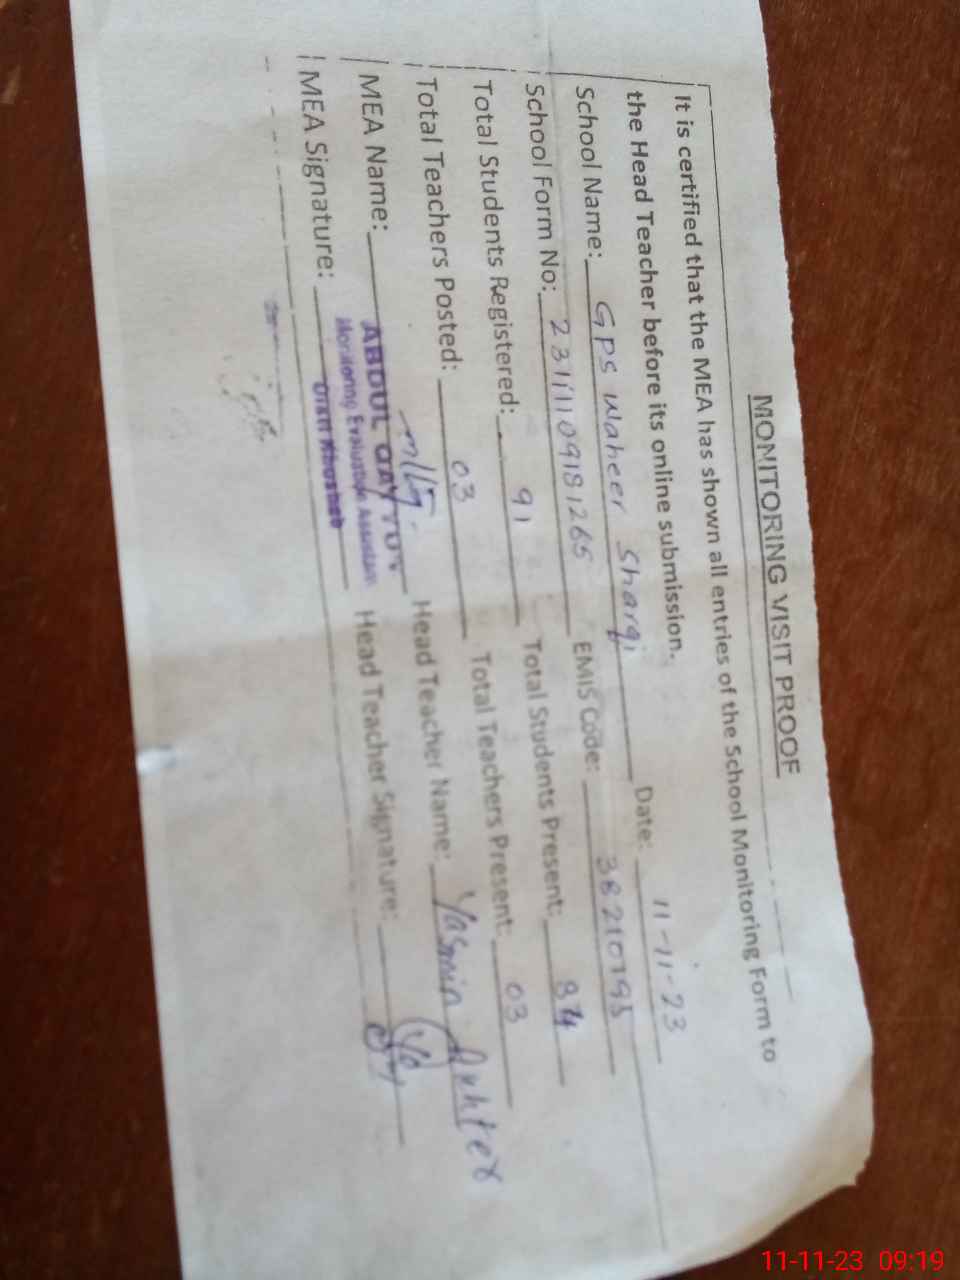 MONITORING VISIT PROOF
It is certified that the MEA has shown all entries of the School Monitoring Form to
the Head Teacher before its online submission.
School Name: GPS Waheer Sharqi Date: 11-11-23
School Form No: EMIS Code: 38210195
Total Students Registered: 91 Total Students Present: 84
Total Teachers Posted: 03 Total Teachers Present: 03
MEA Name: ABDUL Head Teacher Name: Yasmin Akhter
Monitoring Evaluation Assistant
MEA Signature: Distt Khushab Head Teacher Signature:
11-11-23 09:19